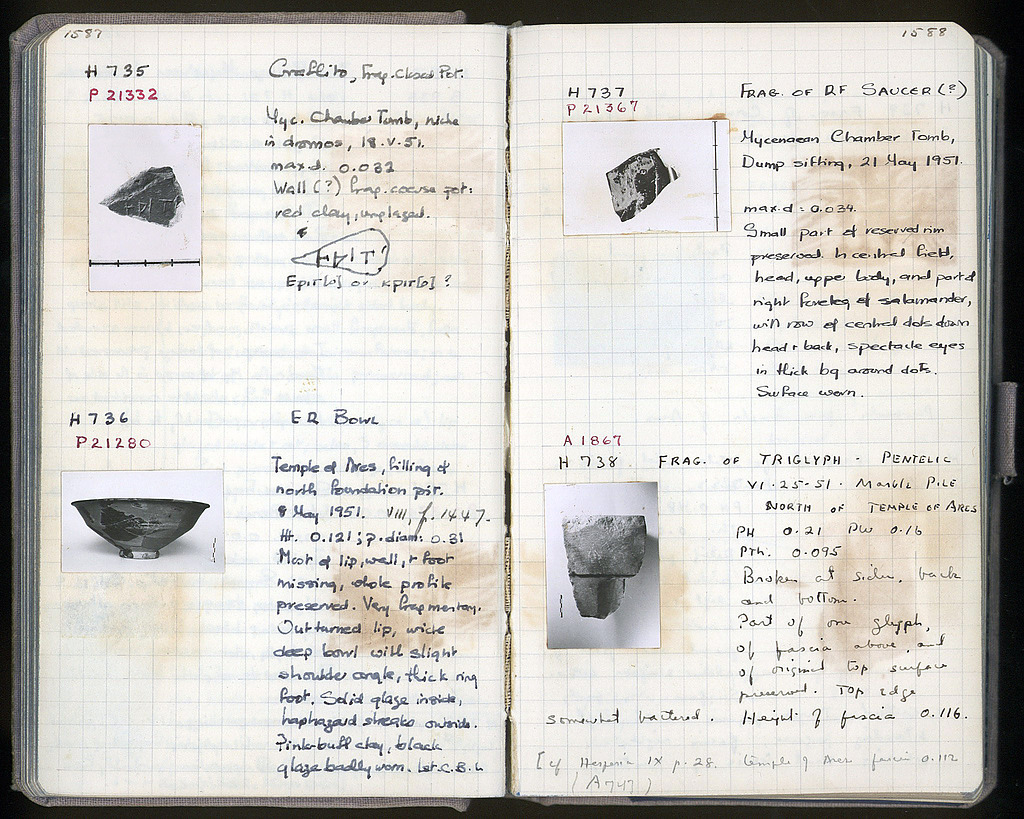 1587
H 735
P 21332
Graffito, Frag. Closed Pot.
Myc. Chamber Tomb, niche
in dromos, 18.V.51.
max.d. 0.032
Wall (?) frag. coarse pot:
red clay, unglazed.
Επιτ[ο] or κριτ[ο] ?
H 736
P 21280
ER Bowl
Temple of Ares, filling of
north foundation pit.
8 May 1951. VIII, p. 1447.
Ht. 0.121; p. diam: 0.31
Most of lip, wall, + foot
missing, whole profile
preserved. Very fragmentary.
Outturned lip, wide
deep bowl with slight
shoulder angle, thick ring
foot. Solid glaze inside,
haphazard streaks outside.
Pink-buff clay, black
glaze badly worn. 1st.C.B.C.
1588
H 737
P 21367
FRAG. OF RF SAUCER (?)
Mycenaean Chamber Tomb,
Dump sifting, 21 May 1951.
max.d = 0.034.
Small part of reserved rim
preserved. In central field,
head, upper body, and part of
right foreleg of salamander,
with row of central dots down
head + back, spectacle eyes
in thick bg around dots.
Surface worn.
A 1867
H 738 FRAG. OF TRIGLYPH - PENTELIC
VI-25-51 - Marble Pile
NORTH OF TEMPLE OF ARES
PH 0.21 PW 0.16
PTh. 0.095
Broken at sides, back
and bottom.
Part of one glyph,
of fascia above, and
of original top surface
preserved. Top edge
somewhat battered. Height of fascia 0.116.
[cf Hesperia IX p. 28. Temple of Ares fascia 0.112
(A 747)